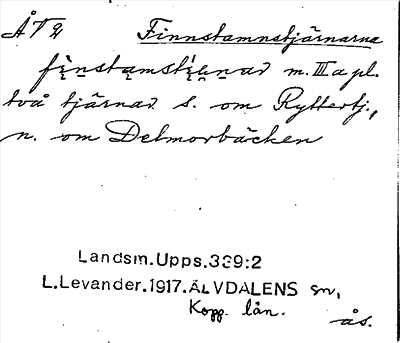 ÅT2 Finnstamnstjärnarna
två tjärnar s. om Ryttertj.,
n. om Delmorbäcken
Landsm.Upps.339:2
L.Levander.1917.ÄLVDALENS sn,
Kopp. län.
ås.